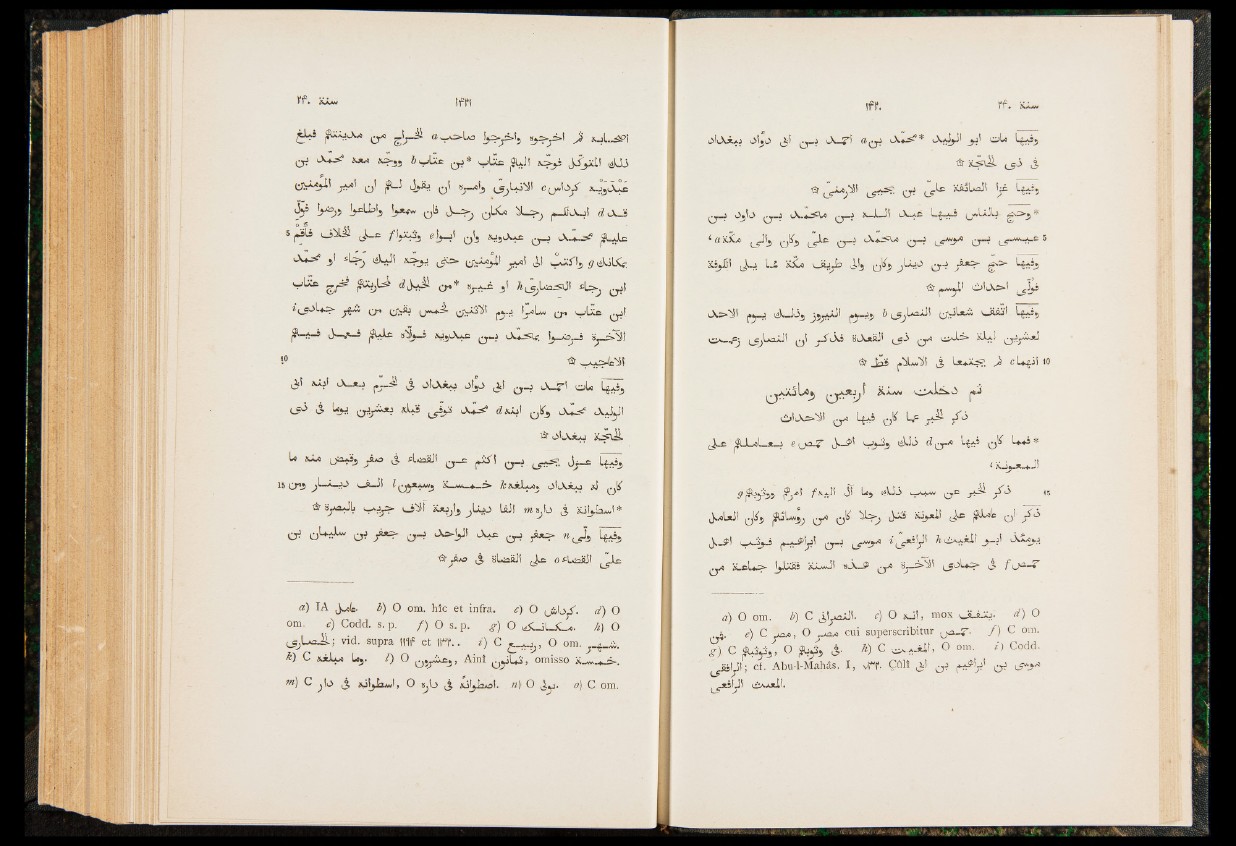 سنة ٢٤٠ ١٤٢٠
وفيها مات ابو الوليد *محمّد بن a احمد بن ابى دواد ببغداد
فى ذى الحجّة ☆
وفيها غزا الصائفة علىّ بن يحيى الارمنىّ ☆
*وحجّ بالناس فيها عبد الله بن محمّد بن داود بن
5 عيسى بن موسى بن محمّد بن علىّ وكان والى مكّة a ،
وفيها حجّ جعفر بن دينار وكان والى طريق مكّة ممّا يلى الكوفة
فولّى احداث الموسم ☆
وفيها اتّفق شعانين النصارى b ويوم النيروز وذلك يوم الاحد
لعشرين ليلة خلت من ذى القعدة فذكر ان النصارى زعمت
10 انهما c لم يجتمعا فى الاسلام قطّ ☆
ثم دخلت سنة اربعين ومائتين
ذكر الخبر عما كان فيها من الاحداث
*فمما كان فيها من d ذلك وثوب اهل حمص e بعاملهم على
المعونة ،
15 ذكر الخبر عن سبب ذلك وما آل اليه f امرهم ووثوبهم g
ذكر ان عاملهم على المعونة قتل رجلا كان من رؤسائهم وكان العامل
يومئذ ابو المغيث h الرافعىّ i موسى بن ابرهيم فوثب اهل
حمص f فى جمادى الآخرة من هذه السنة فقتلوا جماعة من
a) O om. b) C النصرانى. c) O انه, mox يتفق. d) O
فمن. e) C مصر, O مصر cui superscribitur حمص. f) C om.
g) C وثوثبهم, O فى وثوبهم. h) C المغيب, O om. i) Codd.
الرافقى; cf. Abu-l-Mahâs. I, ٧٣٢. Çûlî موسى بن ابرهيم بن ابى
المغيث الرافعى.
سنة ٢٤٠ ١٤٢١
اصحابه ثم اخرجوه واخرجوا صاحب a الخراج من مدينتهم فبلغ
ذلك المتوكّل فوجّه اليهم عتّاب *بن عتّاب b ووجّه معه محمّد بن
عبدويه كرداس c الانبارىّ وامره ان يقول لهم ان امير المؤمنين
قد d ابدلكم رجلا مكان رجل فان سمعوا واطاعوا ورضوا فولّ
5 عليهم محمّد بن عبدويه وان ابوا e وثبتوا f على الخلاف فأقم
بمكانك g واكتب الى امير المؤمنين حتى يوجّه اليك رجاء او محمّد
ابن رجاء الحضارىّ h او غيره *من الخيل d لمحاربتهم فخرج عتّاب
ابن عتّاب من سامرّا يوم الاثنين لخمس بقين من شهر جمادى i
الآخرة فرضوا بمحمّد بن عبدويه فولّاه عليهم ففعل فيهم
10 الاعاجيب ☆
وفيها مات احمد بن ابى دواد ببغداد فى المحرّم بعد ابنه ابى
الوليد محمّد وكان ابنه d محمّد توفّى قبله بعشرين يوما فى ذى
الحجّة ببغداد ☆
وفيها عزل يحيى بن اكثم عن القضاء فى صفر وقبض منه ما
15 كان له ببغداد ومبلغه k خمسة وسبعون l الف دينار ومن
*اسطوانة فى داره m الفا دينار واربعة آلاف جريب بالبصرة ☆
وفيها ولى n جعفر بن عبد الواحد بن جعفر بن سليمان بن
علىّ على القضاء o القضاة فى صفر ☆
a) IA عامل. b) O om. hîc et infra. c) O كرداش. d) O
om. e) Codd. s. p. f) O s. p. g) O مكانك. h) O
الحصارى; vid. supra et i) C ربيع, O om. شهر.
k) C وما مبلغه. l) O وعشرون, Ainî ثمانون, omisso خمسة.
m) C اسطوانه فى دار, O اصطوانه فى داره. n) O تولى. o) C om.